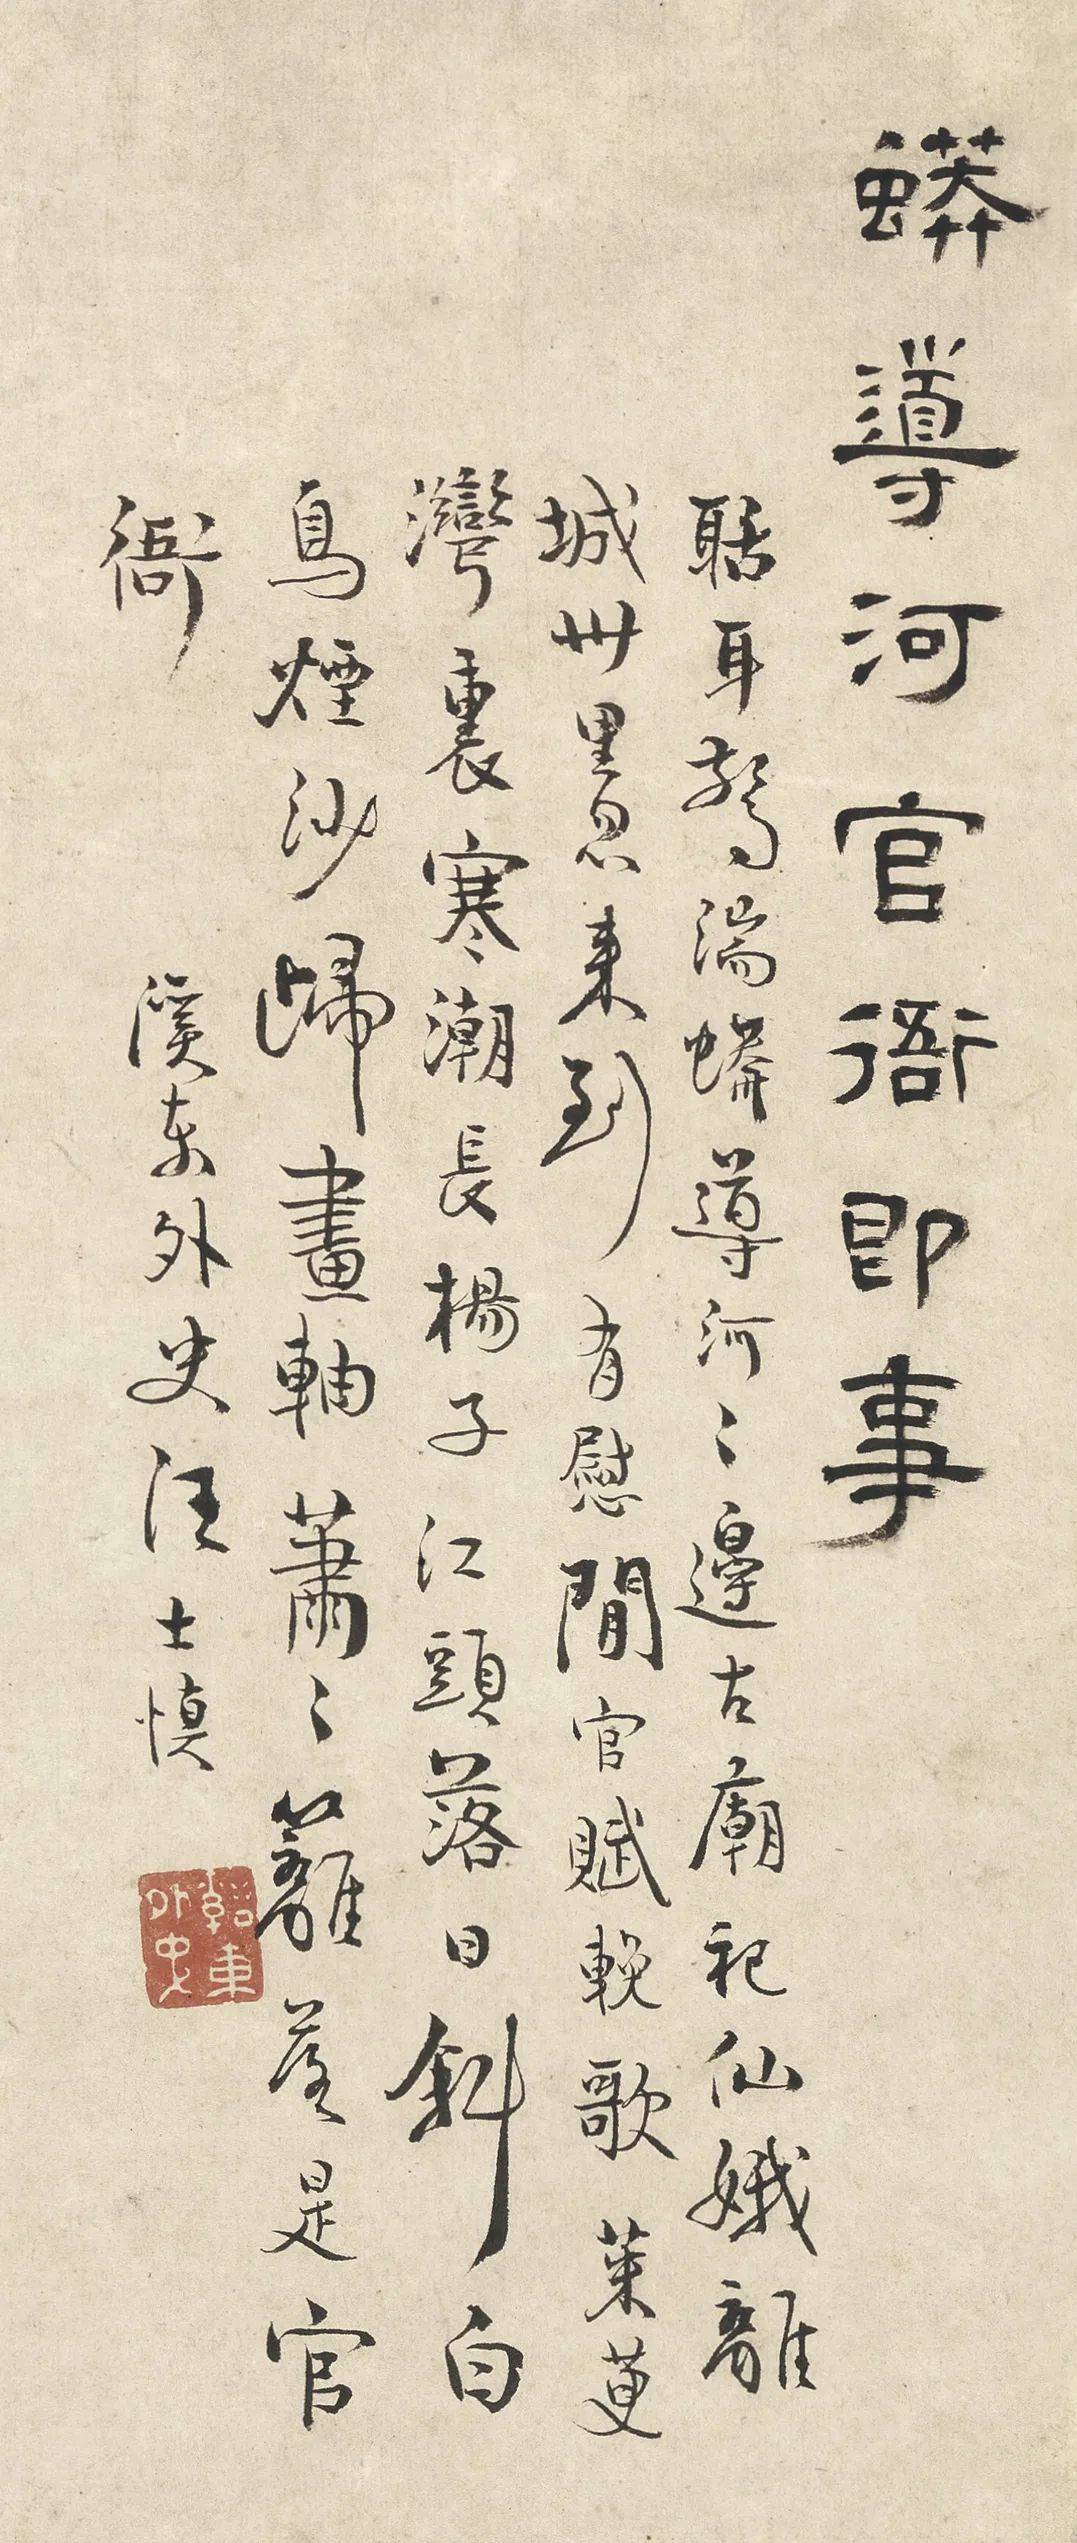 蟒導河官衙即事
聒耳驚湍蟒導河〻邊古廟祀仙娥離
城卅里忽來到有慰閒官賦軟歌茱萸
灣裏寒潮長楊子江頭落日斜白
鳥煙沙歸畫軸蕭〻籬落是官
衙
溪東外史汪士慎
溪東外史